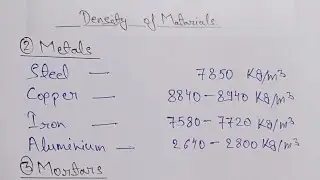 Density of Materials
② Metals
Steel — 7850 Kg/m³
Copper — 8840 – 8940 Kg/m³
Iron — 7580 – 7720 Kg/m³
Aluminium — 2640 – 2800 Kg/m³
③ Mortars